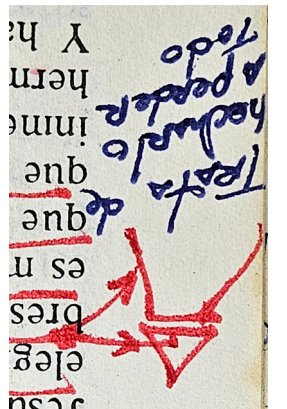 Jesú
eleg
bres
es m
que
que
inme
herm
Y ha
Trata de
hecharlo
A perder
Todo